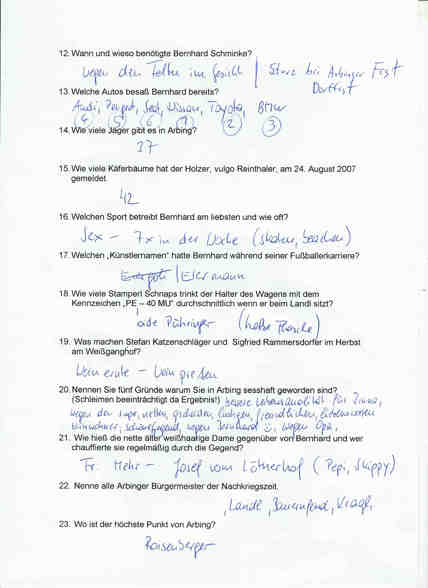 12. Wann und wieso benötigte Bernhard Schminke?
wegen den im Gesicht | Sturz bei Arbinger Fest
Dorffest
13. Welche Autos besaß Bernhard bereits?
Audi, Peugeot, Seat, Nissan, Toyota, BMW
4 5 6 1 2 3
14. Wie viele Jäger gibt es in Arbing?
17
15. Wie viele Käferbäume hat der Holzer, vulgo Reinthaler, am 24. August 2007
gemeldet
42
16. Welchen Sport betreibt Bernhard am liebsten und wie oft?
Sex – 7x in der Woche
17. Welchen „Künstlernamen“ hatte Bernhard während seiner Fußballerkarriere?
| Eiermann
18. Wie viele Stamperl Schnaps trinkt der Halter des Wagens mit dem
Kennzeichen „PE – 40 MU“ durchschnittlich wenn er beim Landl sitzt?
Pühringer (halbe Flasche)
19. Was machen Stefan Katzenschläger und Sigfried Rammersdorfer im Herbst
am Weißganghof?
Weinernte – Wein pressen
20. Nennen Sie fünf Gründe warum Sie in Arbing sesshaft geworden sind?
(Schleimen beeinträchtigt da Ergebnis!) bessere Lebensqualität für
wegen der super, netten, lustigen, freundlichen, liebenswerten
Einwohner, wegen Bernhard, wegen Opa,
21. Wie hieß die nette älter weißhaarige Dame gegenüber von Bernhard und wer
chauffierte sie regelmäßig durch die Gegend?
Fr. Mehr – Josef vom (Pepi, Skippy)
22. Nenne alle Arbinger Bürgermeister der Nachkriegszeit.
, Landl,
23. Wo ist der höchste Punkt von Arbing?